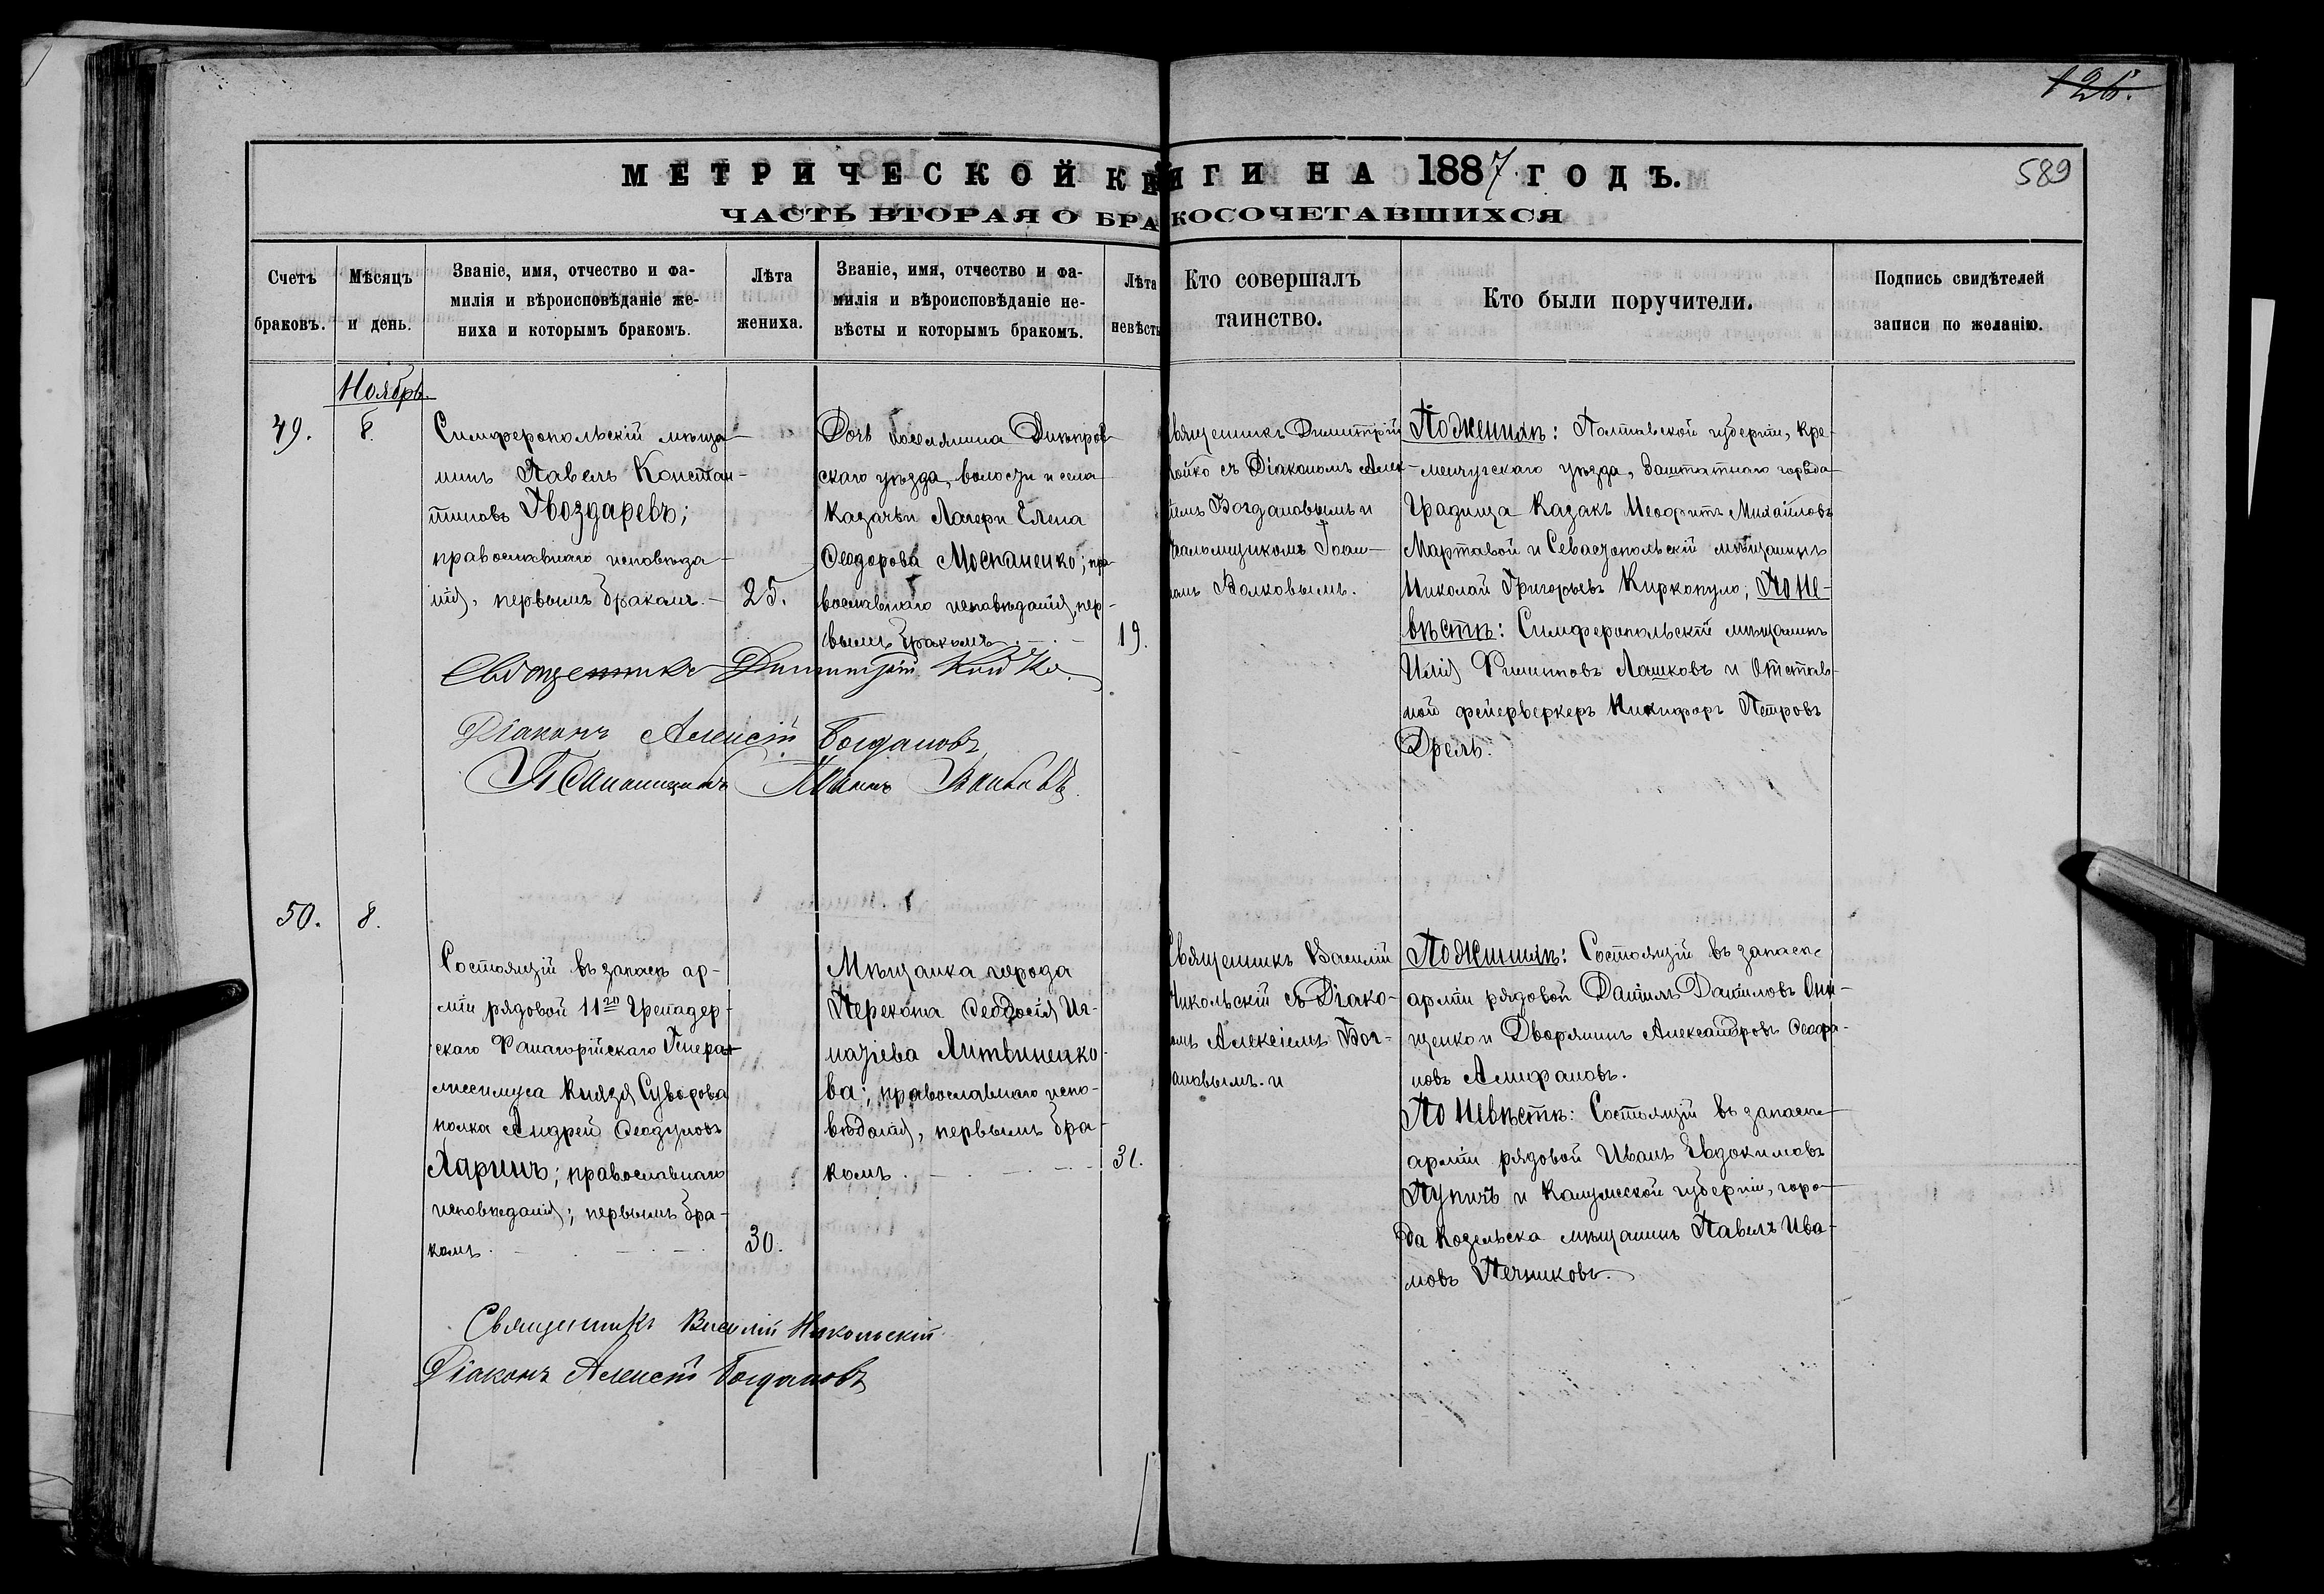 126.
МЕТРИЧЕСКОЙ КНИГИ НА 1887 ГОДЪ.
589
ЧАСТЬ ВТОРАЯ О БРАКОСОЧЕТАВШИХСЯ
Счетъ
браковъ.
Мѣсяцъ
и день.
Званіе, имя, отчество и фа-
милія и вѣроисповѣданіе же-
ниха и которымъ бракомъ.
Лѣта
жениха.
Званіе, имя, отчество и фа-
милія и вѣроисповѣданіе не-
вѣсты и которымъ бракомъ.
Лѣта
невѣсты
Кто совершалъ
таинство.
Кто были поручители.
Подпись свидѣтелей
записи по желанію.
Ноябрь.
49.
8.
Симферопольскій мѣща-
нинъ Павелъ Констан-
тиновъ Гвоздаревъ;
православнаго исповѣда-
нія, первымъ бракомъ.
25.
Дочь поселянина Днѣпров-
скаго уѣзда, волости и села
Казачьи Лагери Елена
Ѳеодорова Моспаненко; пра-
вославнаго исповѣданія, пер-
вымъ бракомъ.
19.
вященникъ Димитрій
Койко съ Діакономъ Алек-
емъ Богдановымъ и
саломщикомъ Іоан-
номъ Волковымъ.
По Женихѣ: Полтавской губерніи, Кре-
менчугскаго уѣзда, заштатнаго города
Градижа Казакъ Неофитъ Михайловъ
Мартавой и Севастопольскій мѣщанинъ
Николай Григорьевъ Киркопуло; По Не-
вѣстѣ: Симферопольскій мѣщанинъ
Илія Филипповъ Лашковъ и Отстав-
ной фейерверкеръ Никифоръ Петровъ
Дрель.
Священникъ Димитрій Койко.
Діаконъ Алексій Богдановъ
Псаломщикъ Іоаннъ Волковъ
50.
8.
Состоящій въ запасѣ ар-
міи рядовой 11го Гренадер-
скаго Фанагорійскаго Генера-
лиссимуса Князя Суворова
полка Андрей Ѳеодуловъ
Ларинъ; православнаго
исповѣданія; первымъ бра-
комъ.
30.
Мѣщанка города
Перекопа Ѳеодосія Иг-
натіева Литвиненко-
ва; православнаго испо-
вѣданія, первымъ бра-
комъ.
31.
Священникъ Василій
Никольскій съ Діако-
омъ Алексіемъ Бог-
ановымъ. и
По Женихѣ: Состоящій въ запасѣ
арміи рядовой Даніилъ Даниловъ Они-
щенко и Дворянинъ Александровъ Ѳеофа-
новъ Алифановъ.
По Невѣстѣ: Состоящій въ запасѣ
арміи рядовой Иванъ Евдокимовъ
Лупичъ и Калужской губерніи, горо-
да Козельска мѣщанинъ Павелъ Ива-
новъ Печниковъ.
Священникъ Василій Никольскій
Діаконъ Алексій Богдановъ